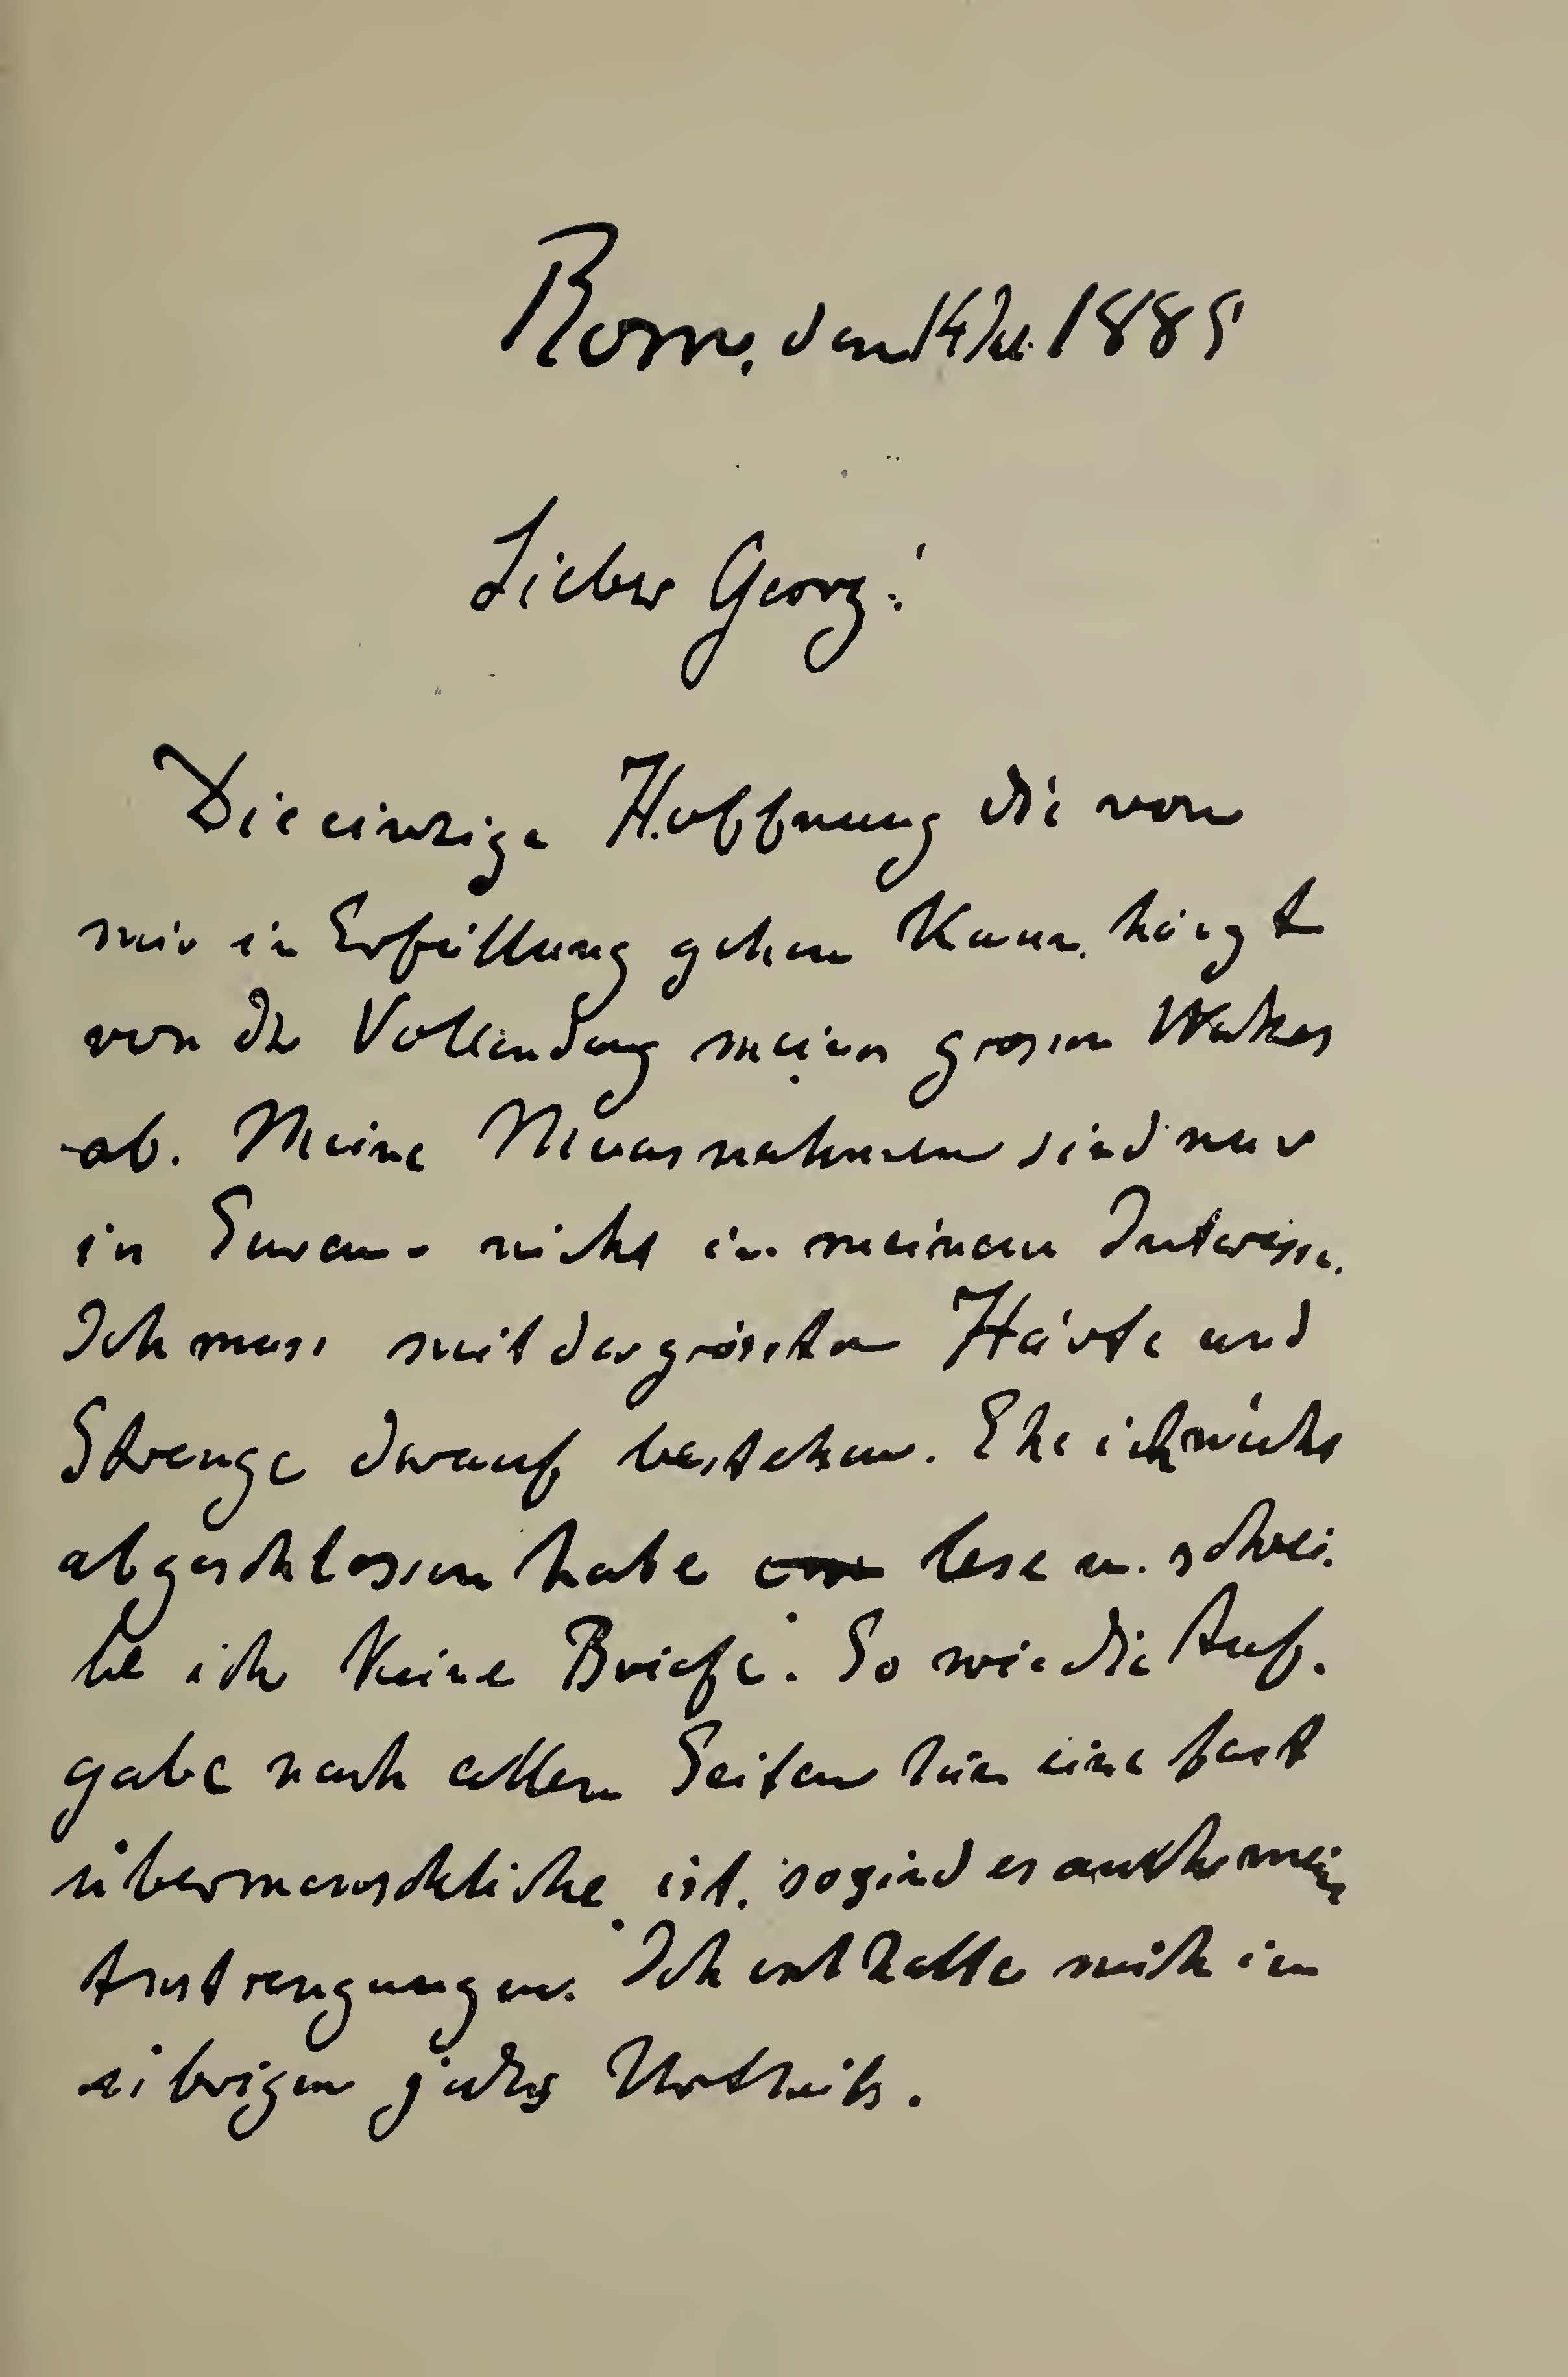 Rom, den 14 Jul. 1885
Lieber Georg!
Die einzige Hoffnung die von
mir in Erfüllung gehen kann, hängt
von der Vollendung meines grossen Werkes
ab. Meine Maasnahmen sind nur
in Euren - nicht in meinem Interesse.
Ich muss mit der grössten Härte und
Strenge darauf bestehen. Ehe ich nicht
abgeschlossen habe lese u. schrei-
be ich keine Briefe. So wie die Auf-
gabe nach allen Seiten hin eine fast
übermenschliche ist, so sind es auch meine
Anstrengungen. Ich enthalte mich im
übrigen jedes Urtheils.